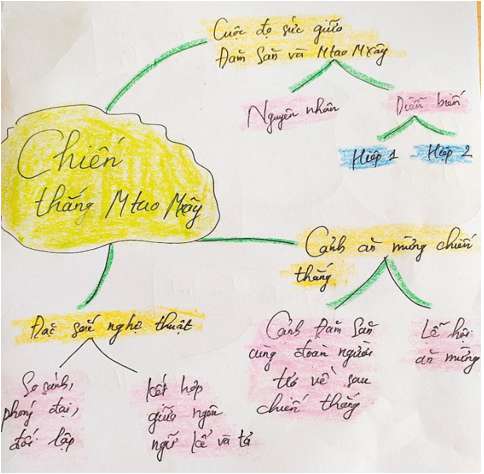 Chiến
thắng Mtao Mxây
Cuộc đọ sức giữa
Đăm Săn và Mtao Mxây
Nguyên nhân
Diễn biến
Hiệp 1
Hiệp 2
Cảnh ăn mừng chiến
thắng
Cảnh Đăm Săn
cùng đoàn người
trở về sau
chiến thắng
Lễ hội
ăn mừng
Đặc sắc nghệ thuật
So sánh,
phóng đại,
đối lập
kết hợp
giữa ngôn
ngữ kể và tả